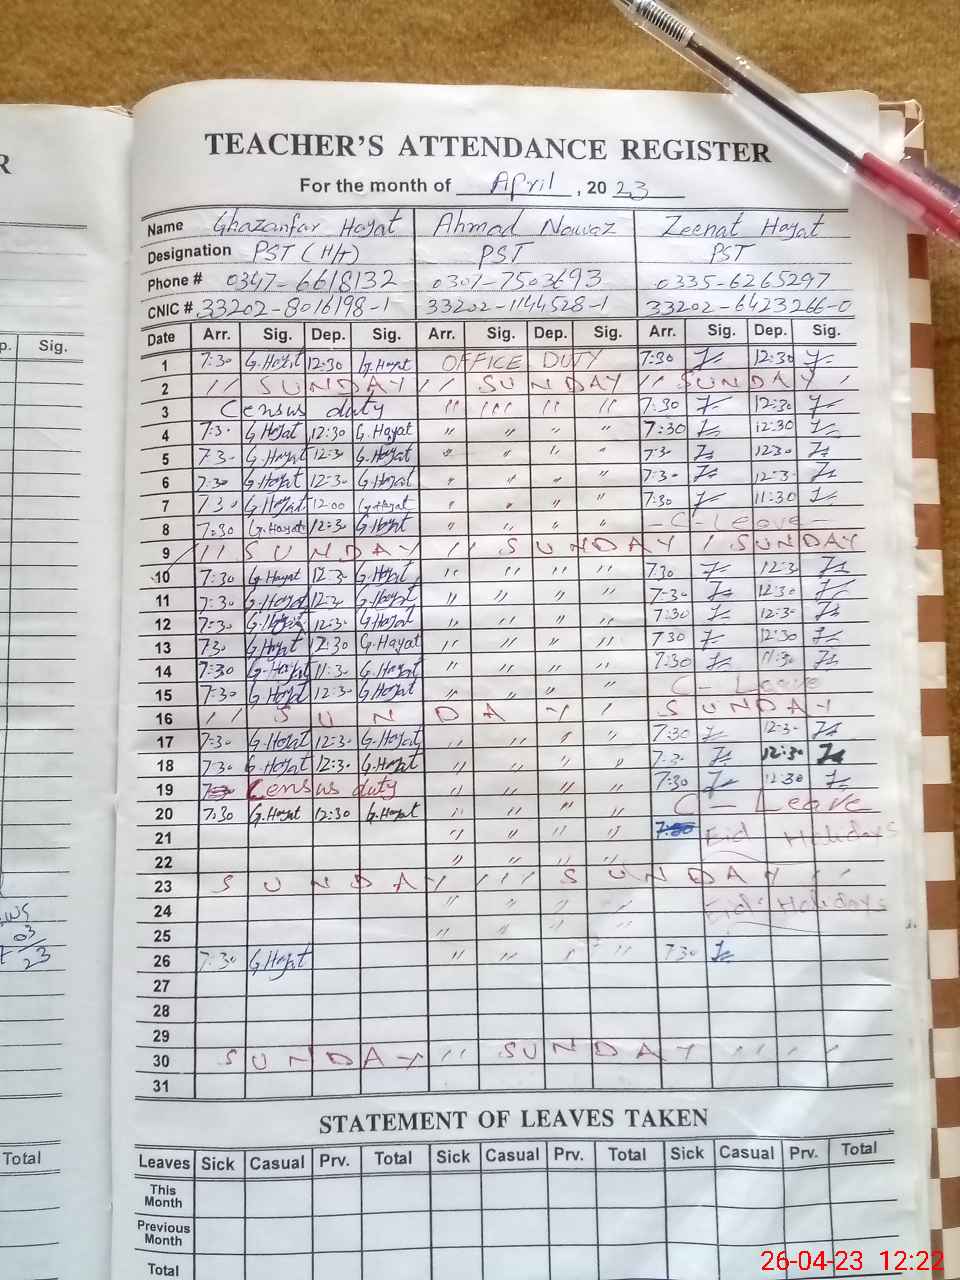 R
TEACHER'S ATTENDANCE REGISTER
For the month of April, 2023
Name Ghazanfar Hayat Ahmad Nawaz Zeenat Hayat
Designation PST (H/t) PST PST
Phone # 0347-6618132 0307-7503693 0335-6265297
CNIC # 33202-8016198-1 33202-1144528-1 33202-6423266-0
p. Sig.
Date Arr. Sig. Dep. Sig. Arr. Sig. Dep. Sig. Arr. Sig. Dep. Sig.
1 7:30 G.Hayat 12:30 G.Hayat OFFICE DUTY 7:30 12:30
2 // SUNDAY // SUNDAY // SUNDAY
3 Census duty " " " " 7:30 12:30
4 7:3- G.Hayat 12:30 G.Hayat " " " " 7:30 12:30
5 73- G.Hayat 12:3- G.Hayat " " " " 7:3- 12:30
6 7:30 G.Hayat 12:3- G.Hayat " " " " 7:3- 12:3-
7 730 G.Hayat 12:00 G.Hayat " " " " 7:30 11:30
8 7:30 G.Hayat 12:3- G.Hayat " " " " -C-Leave-
9 // SUNDAY // SUNDAY / SUNDAY
10 7:30 G.Hayat 12:3- G.Hayat " " " " 730 12:3-
11 7:3- G.Hayat 12:3- G.Hayat " " " " 7-3- 12:30
12 7:3- G.Hayat 12:3- G.Hayat " " " " 7:30 12:3-
13 730 G.Hayat 12:30 G.Hayat " " " " 730 12:30
14 7:30 G.Hayat 11:3- G.Hayat " " " " 7:30 11:30
15 7:3- G.Hayat 12:3- G.Hayat " " " " C-Leave
16 // SUNDAY / SUNDAY
17 7-3- G.Hayat 12:3- G.Hayat " " " " 7:30 12:3-
18 73- G.Hayat 12:3- G.Hayat " " " " 7-3- 12:30
19 Census duty " " " " 7:30 12:30
20 7:30 G.Hayat 12:30 G.Hayat " " " " C-Leave
21 " " " " 7:30 Eid Holidays
22 " " " "
23 SUNDAY /// SUNDAY //
24 " " " " Eid Holidays
25 " " " "
26 7:30 G.Hayat " " " " 730
27
28
29
30 SUNDAY // SUNDAY // // /
31
03
23
STATEMENT OF LEAVES TAKEN
Total
Leaves Sick Casual Prv. Total Sick Casual Prv. Total Sick Casual Prv. Total
This Month
Previous Month
Total
26-04-23 12:22